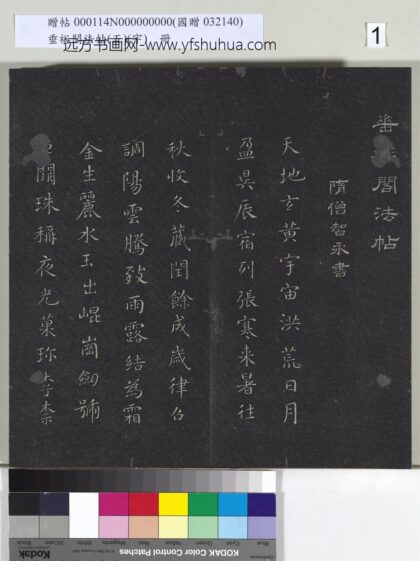 贈帖 000114N000000000(國贈 032140)
垂裕閣法帖
远方书画网-www.yfshuhua.com
1
閣法帖
隋僧智永書
天地玄黃宇宙洪荒日月
盈昃辰宿列張寒来暑往
秋收冬藏閏餘成歲律呂
調陽雲騰致雨露結為霜
金生麗水玉出崐崗劒號
闕珠稱夜光菓珎李柰
Blue
Cyan
Green
Yellow
Red
Magenta
White
3/Color
Black
KODAK Color Control Patches
Kodak